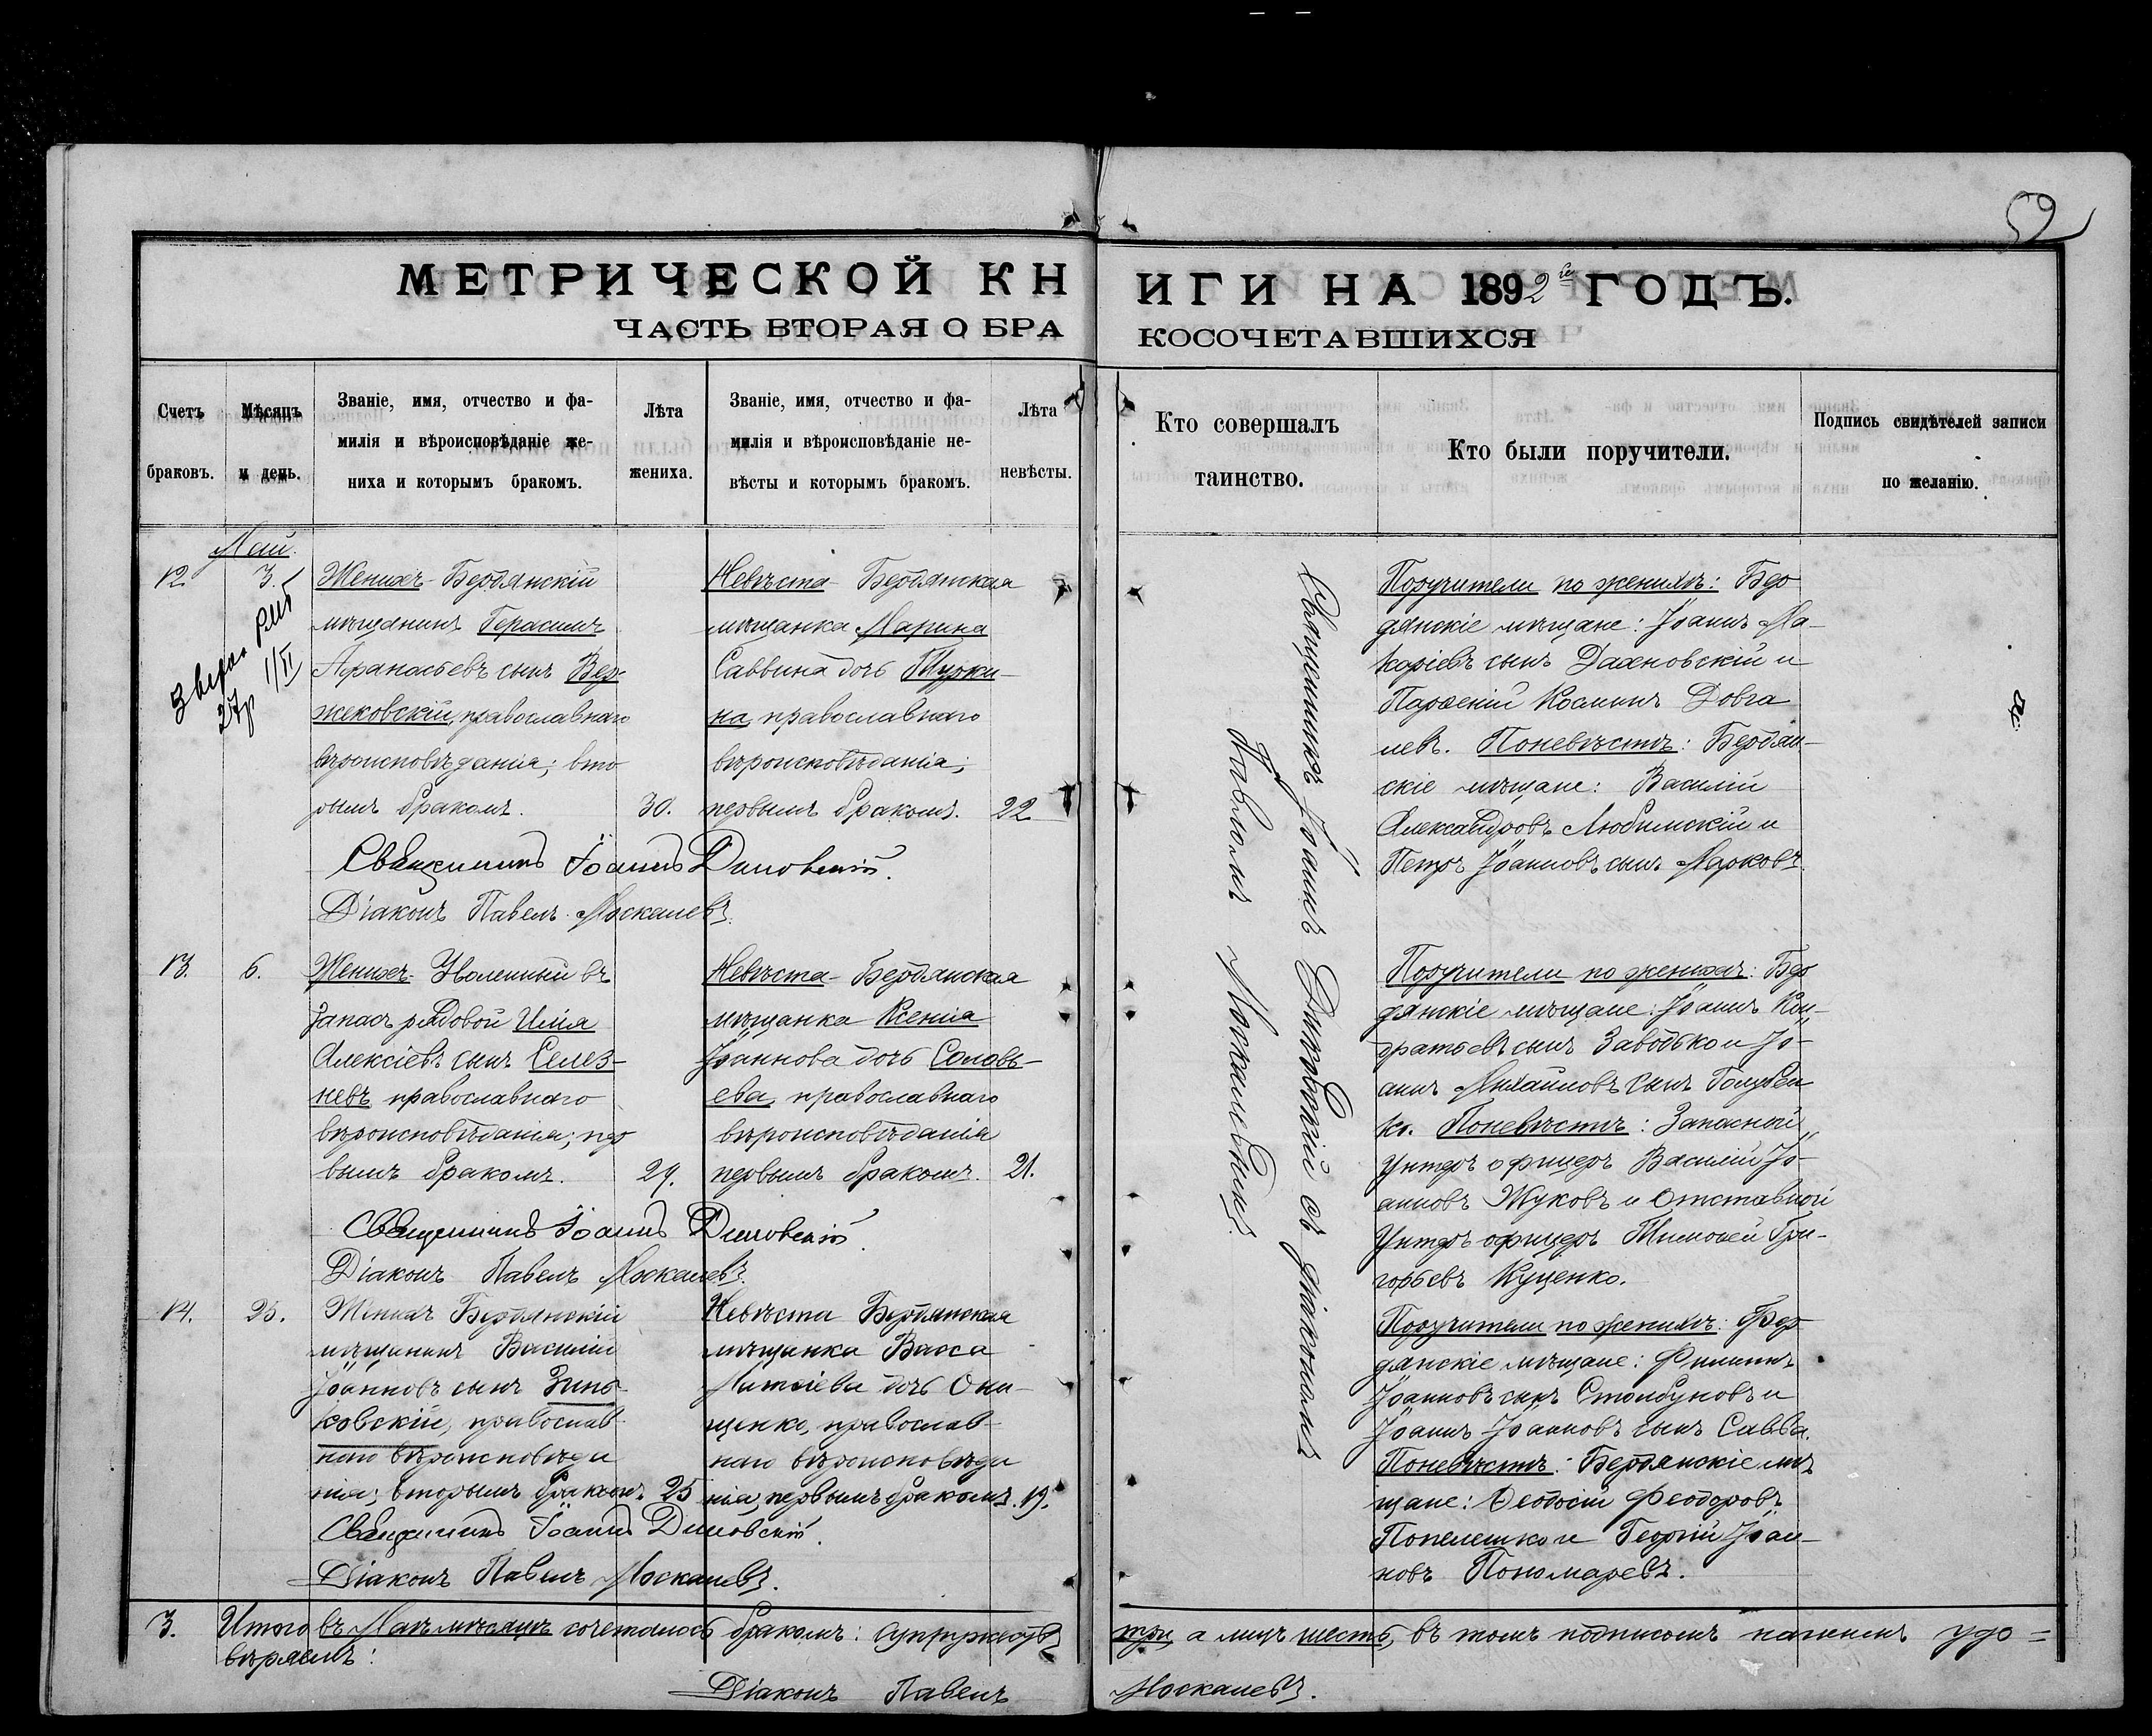 52
МЕТРИЧЕСКОЙ КНИГИ НА 1892й ГОДЪ.
ЧАСТЬ ВТОРАЯ О БРАКОСОЧЕТАВШИХСЯ
Счетъ браковъ.
Мѣсяцъ и день.
Званіе, имя, отчество и фа-
милія и вѣроисповѣданіе же-
ниха и которымъ бракомъ.
Лѣта жениха.
Званіе, имя, отчество и фа-
милія и вѣроисповѣданіе не-
вѣсты и которымъ бракомъ.
Лѣта невѣсты.
Кто совершалъ таинство.
Кто были поручители.
Подпись свидѣтелей записи по желанію.
Май.
12. 3.
Женихъ- Бердянскій
мѣщанинъ Герасимъ
Афанасьевъ сынъ Вер-
жековскій, православнаго
вѣроисповѣданія; вто
рымъ бракомъ. 30.
Невѣста- Бердянская
мѣщанка Марина
Саввина дочь
на, православнаго
вѣроисповѣданія;
первымъ бракомъ. 22
Священникъ Іоаннъ
Діаконъ Павелъ Москалевъ.
Поручители по женихѣ: Бер
дянскіе мѣщане: Іоаннъ Ма-
каріевъ сынъ Дахновскій и
Парѳеній Косминъ Довга
левъ. По невѣстѣ: Бердян-
скіе мѣщане: Василій
Александровъ Любимскій и
Петръ Іоанновъ сынъ Марковъ.
13. 6.
Женихъ- Уволенный въ
запасъ рядовой Илія
Алексіевъ сынъ Селез-
невъ православнаго
вѣроисповѣданія; пер
вымъ бракомъ. 29.
Невѣста- Бердянская
мѣщанка Ксенія
Іоаннова дочь Соловь-
ева, православнаго
вѣроисповѣданія
первымъ бракомъ. 21.
Священникъ Іоаннъ
Діаконъ Павелъ Москалевъ.
Поручители по женихѣ: Бер
дянскіе мѣщане: Іоаннъ Кон-
дратьевъ сынъ Заводько и Іо-
аннъ Михаиловъ сынъ Голубен
ко. По невѣстѣ: Запасной
Унтеръ офицеръ Василій Іо-
анновъ Жуковъ и Отставной
Унтеръ офицеръ Тимоѳей Гри-
горьевъ Куценко.
14. 25.
Женихъ Бердянскій
мѣщанинъ Василій
Іоанновъ сынъ Зинь-
ковскій, православ-
наго вѣроисповѣда
нія; вторымъ бракомъ. 25
Невѣста Бердянская
мѣщанка Васса
Матѳіева дочь Они-
щенко, православ-
наго вѣроисповѣда
нія, первымъ бракомъ. 19.
Священникъ Іоаннъ
Діаконъ Павелъ Москалевъ.
Поручители по женихѣ: Бер
дянскіе мѣщане: Филиппъ
Іоанновъ сынъ Столбуновъ и
Іоаннъ Іоанновъ сынъ Савва.
По невѣстѣ: Бердянскіе мѣ
щане: Ѳеодосій Феодоровъ
Попелешко и Георгій Іоан-
новъ Пономаревъ.
Священникъ Іоаннъ съ діакономъ
Павломъ Москалевымъ.
3. Итого въ Маѣ мѣсяцѣ сочеталось бракомъ: супружествъ три, а лицъ шесть, въ томъ подписомъ нашимъ удо=
вѣряемъ:
Діаконъ Павелъ Москалевъ.